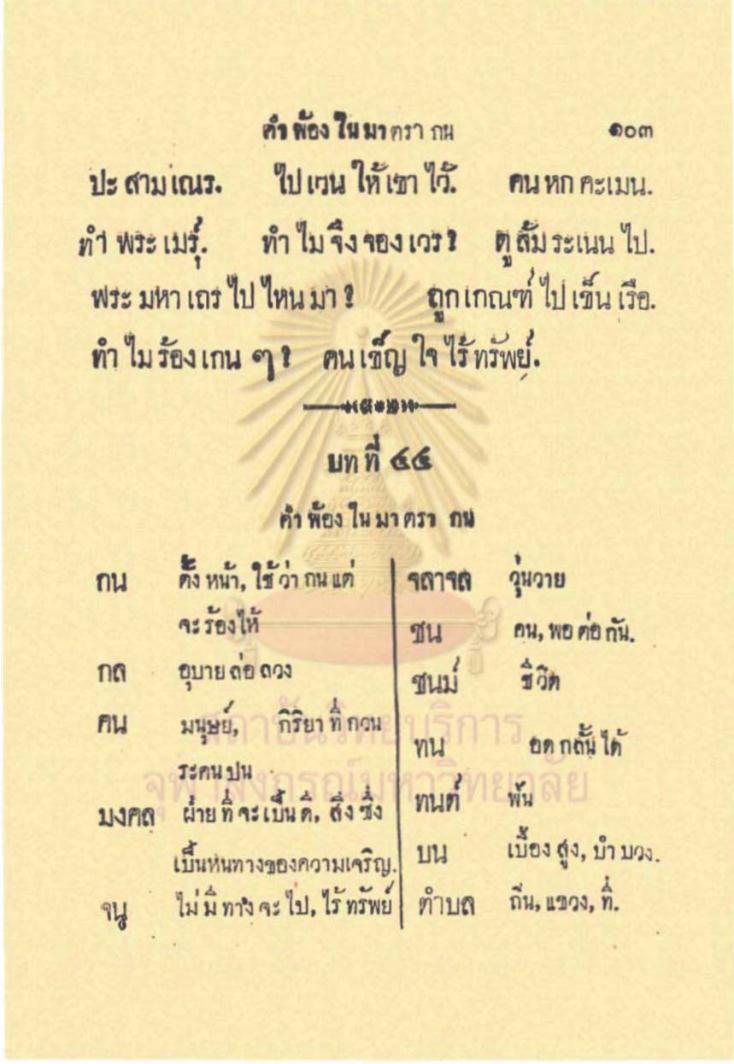 คำ พ้อง ใน มา ตรา กน ๑๐๓
ปะ สาม เณร. ไป เวน ให้ เขา ไว้. คน หก คะเมน.
ทำ พระ เมรุ์. ทำ ไม จึง จอง เวร? ตู ล้ม ระเนน ไป.
พระ มหา เถร ไป ไหน มา? ถูก เกณฑ์ ไป เข็น เรือ.
ทำ ไม ร้อง เกน ๆ? คน เข็ญ ใจ ไร้ ทรัพย์.
บท ที่ ๔๔
คำ พ้อง ใน มา ตรา กน
กน ตั้ง หน้า, ใช้ ว่า กน แต่
จะ ร้อง ไห้
กล อุบาย ล่อ ลวง
คน มนุษย์, กิริยา ที่ กวน
ระคน ปน
มงคล ฝ่าย ที่ จะ เป็น ดี, สิ่ง ซึ่ง
เป็นหนทางของความเจริญ.
จน ไม่ มี ทาง จะ ไป, ไร้ ทรัพย์
จลาจล วุ่นวาย
ชน คน, พอ ต่อ กัน.
ชนม์ ชีวิต
ทน อด กลั้น ได้
ทนต์ ฟัน
บน เบื้อง สูง, บำ บวง.
ตำบล ถิ่น, แขวง, ที่.
สถาบันวิทยบริการ
จุฬาลงกรณ์มหาวิทยาลัย